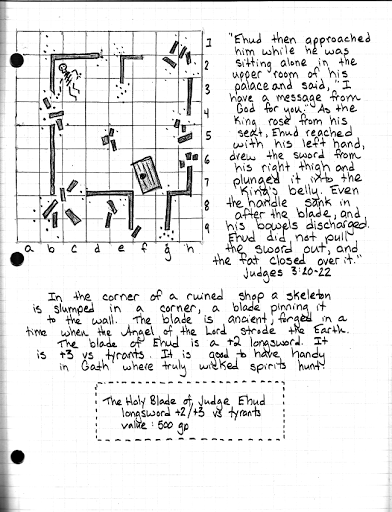 1
2
3
4
5
6
7
8
9
a b c d e f g h
"Ehud then approached
him while he was
sitting alone in the
upper room of his
palace and said, "I
have a message from
God for you." As the
King rose from his
seat, Ehud reached
with his left hand,
drew the sword from
his right thigh and
plunged it into the
King's belly. Even
the handle sank in
after the blade, and
his bowels discharged.
Ehud did not pull
the sword out, and
the fat closed over it."
Judges 3:20-22
In the corner of a ruined shop a skeleton
is slumped in a corner, a blade pinning it
to the wall. The blade is ancient, forged in a
time when the Angel of the Lord strode the Earth.
The blade of Ehud is a +2 longsword. It
is +3 vs tyrants. It is good to have handy
in Gath where truly wicked spirits hunt.
The Holy Blade of Judge Ehud
longsword +2/+3 vs tyrants
value: 500 gp